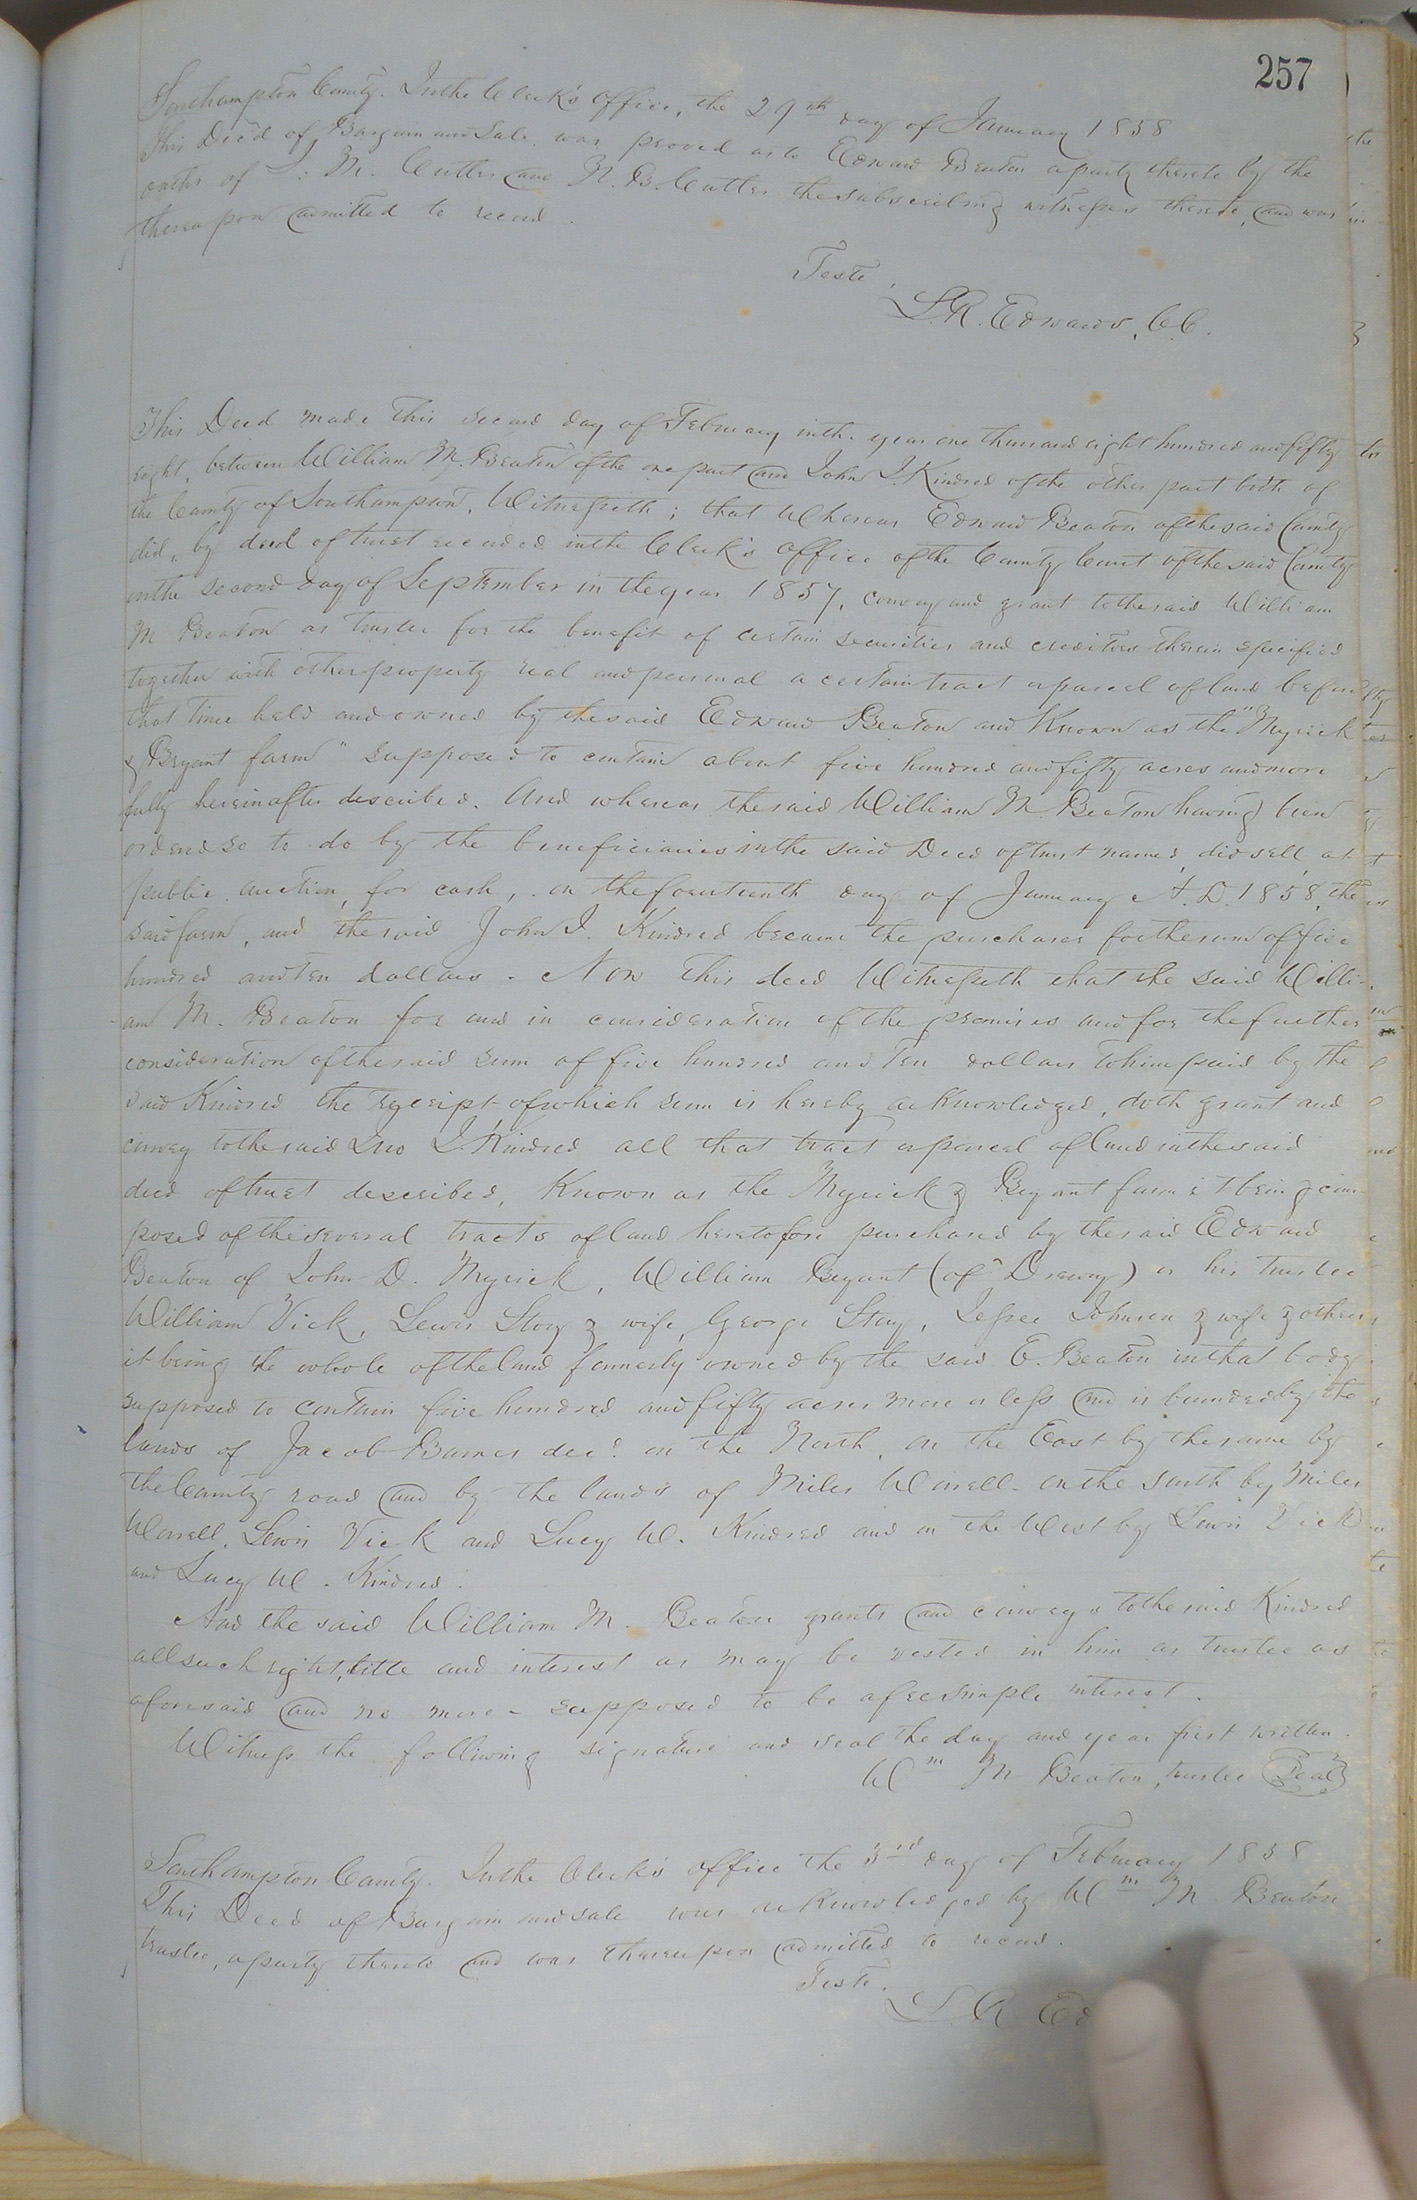 257
Southampton County. In the Clerk's Office, the 29th day of January 1858
This Deed of Bargain and Sale was proved as to Edward Beaton a party thereto by the
oaths of M. Cutler and N. B. Cutler the subscribing witnesses thereto, and was
thereupon admitted to record.
Teste,
L. R. Edwards, C.C.
This Deed made this second day of February in the year one thousand eight hundred and fifty
eight, between William M. Beaton of the one part and John I. Kindred of the other part both of
the County of Southampton, Witnesseth; that Whereas Edward Beaton of the said County
did, by deed of trust recorded in the Clerk's office of the County Court of the said County
on the second day of September in the year 1857, convey and grant to the said William
M Beaton as trustee for the benefit of certain securities and creditors therein specified
together with other property real and personal a certain tract or parcel of land before
that time held and owned by the said Edward Beaton and Known as the "Myrick
& Bryant farm" supposed to contain about five hundred and fifty acres and more
fully hereinafter described. And whereas the said William M. Beaton having been
ordered so to do by the beneficiaries in the said Deed of trust named, did sell, at
public auction, for cash, on the fourteenth day of January A.D. 1858, the
said farm, and the said John I. Kindred became the purchaser for the sum of five
hundred and ten dollars - Now this deed Witnesseth that the said Willi-
am M. Beaton for and in consideration of the premises and for the further
consideration of the said sum of five hundred and Ten dollars to him paid by the
said Kindred the receipt of which sum is hereby acknowledged, doth grant and
convey to the said Jno I. Kindred all that tract or parcel of land in the said
deed of trust described, Known as the Myrick & Bryant farm it being com-
posed of the several tracts of land heretofore purchased by the said Edward
Beaton of John D. Myrick, William Bryant (of Drewry) or his trustee
William Vick, Lewis Story & wife, George Story, Jesse Johnson & wife & others,
it being the whole of the land formerly owned by the said E. Beaton in that body
supposed to contain five hundred and fifty acres more or less and is bounded by the
lands of Jacob Barnes decd. on the North, on the East by the same by
the County road and by the lands of Miles Worrell - on the South by Miles
Worrell, Lewis Vick and Lucy W. Kindred and on the West by Lewis Vick
and Lucy W. Kindred.
And the said William M. Beaton grants and conveys to the said Kindred
all such right, title and interest as may be vested in him as trustee as
aforesaid and no more - supposed to be a fee simple interest.
Witness the following signature and seal the day and year first written.
Wm M Beaton, trustee Seal
Southampton County. In the Clerk's office the 3rd day of February 1858
This Deed of Bargain and sale was acknowledged by Wm M. Beaton
trustee, a party thereto and was thereupon admitted to record.
Teste.
L. R. Ed